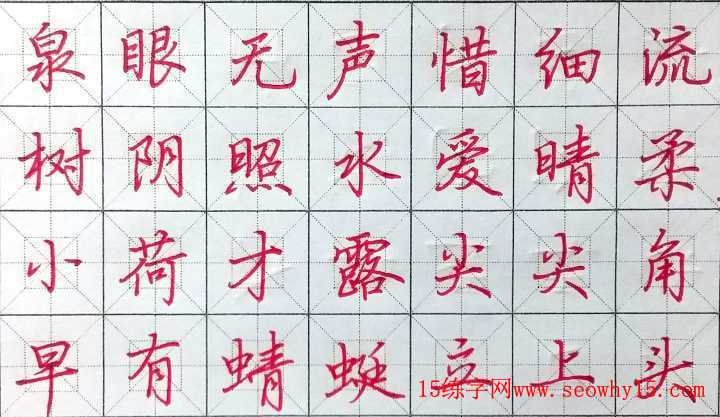 泉眼无声惜细流
树阴照水爱晴柔
小荷才露尖尖角
早有蜻蜓立上头
15练字网www.seowhy15.com